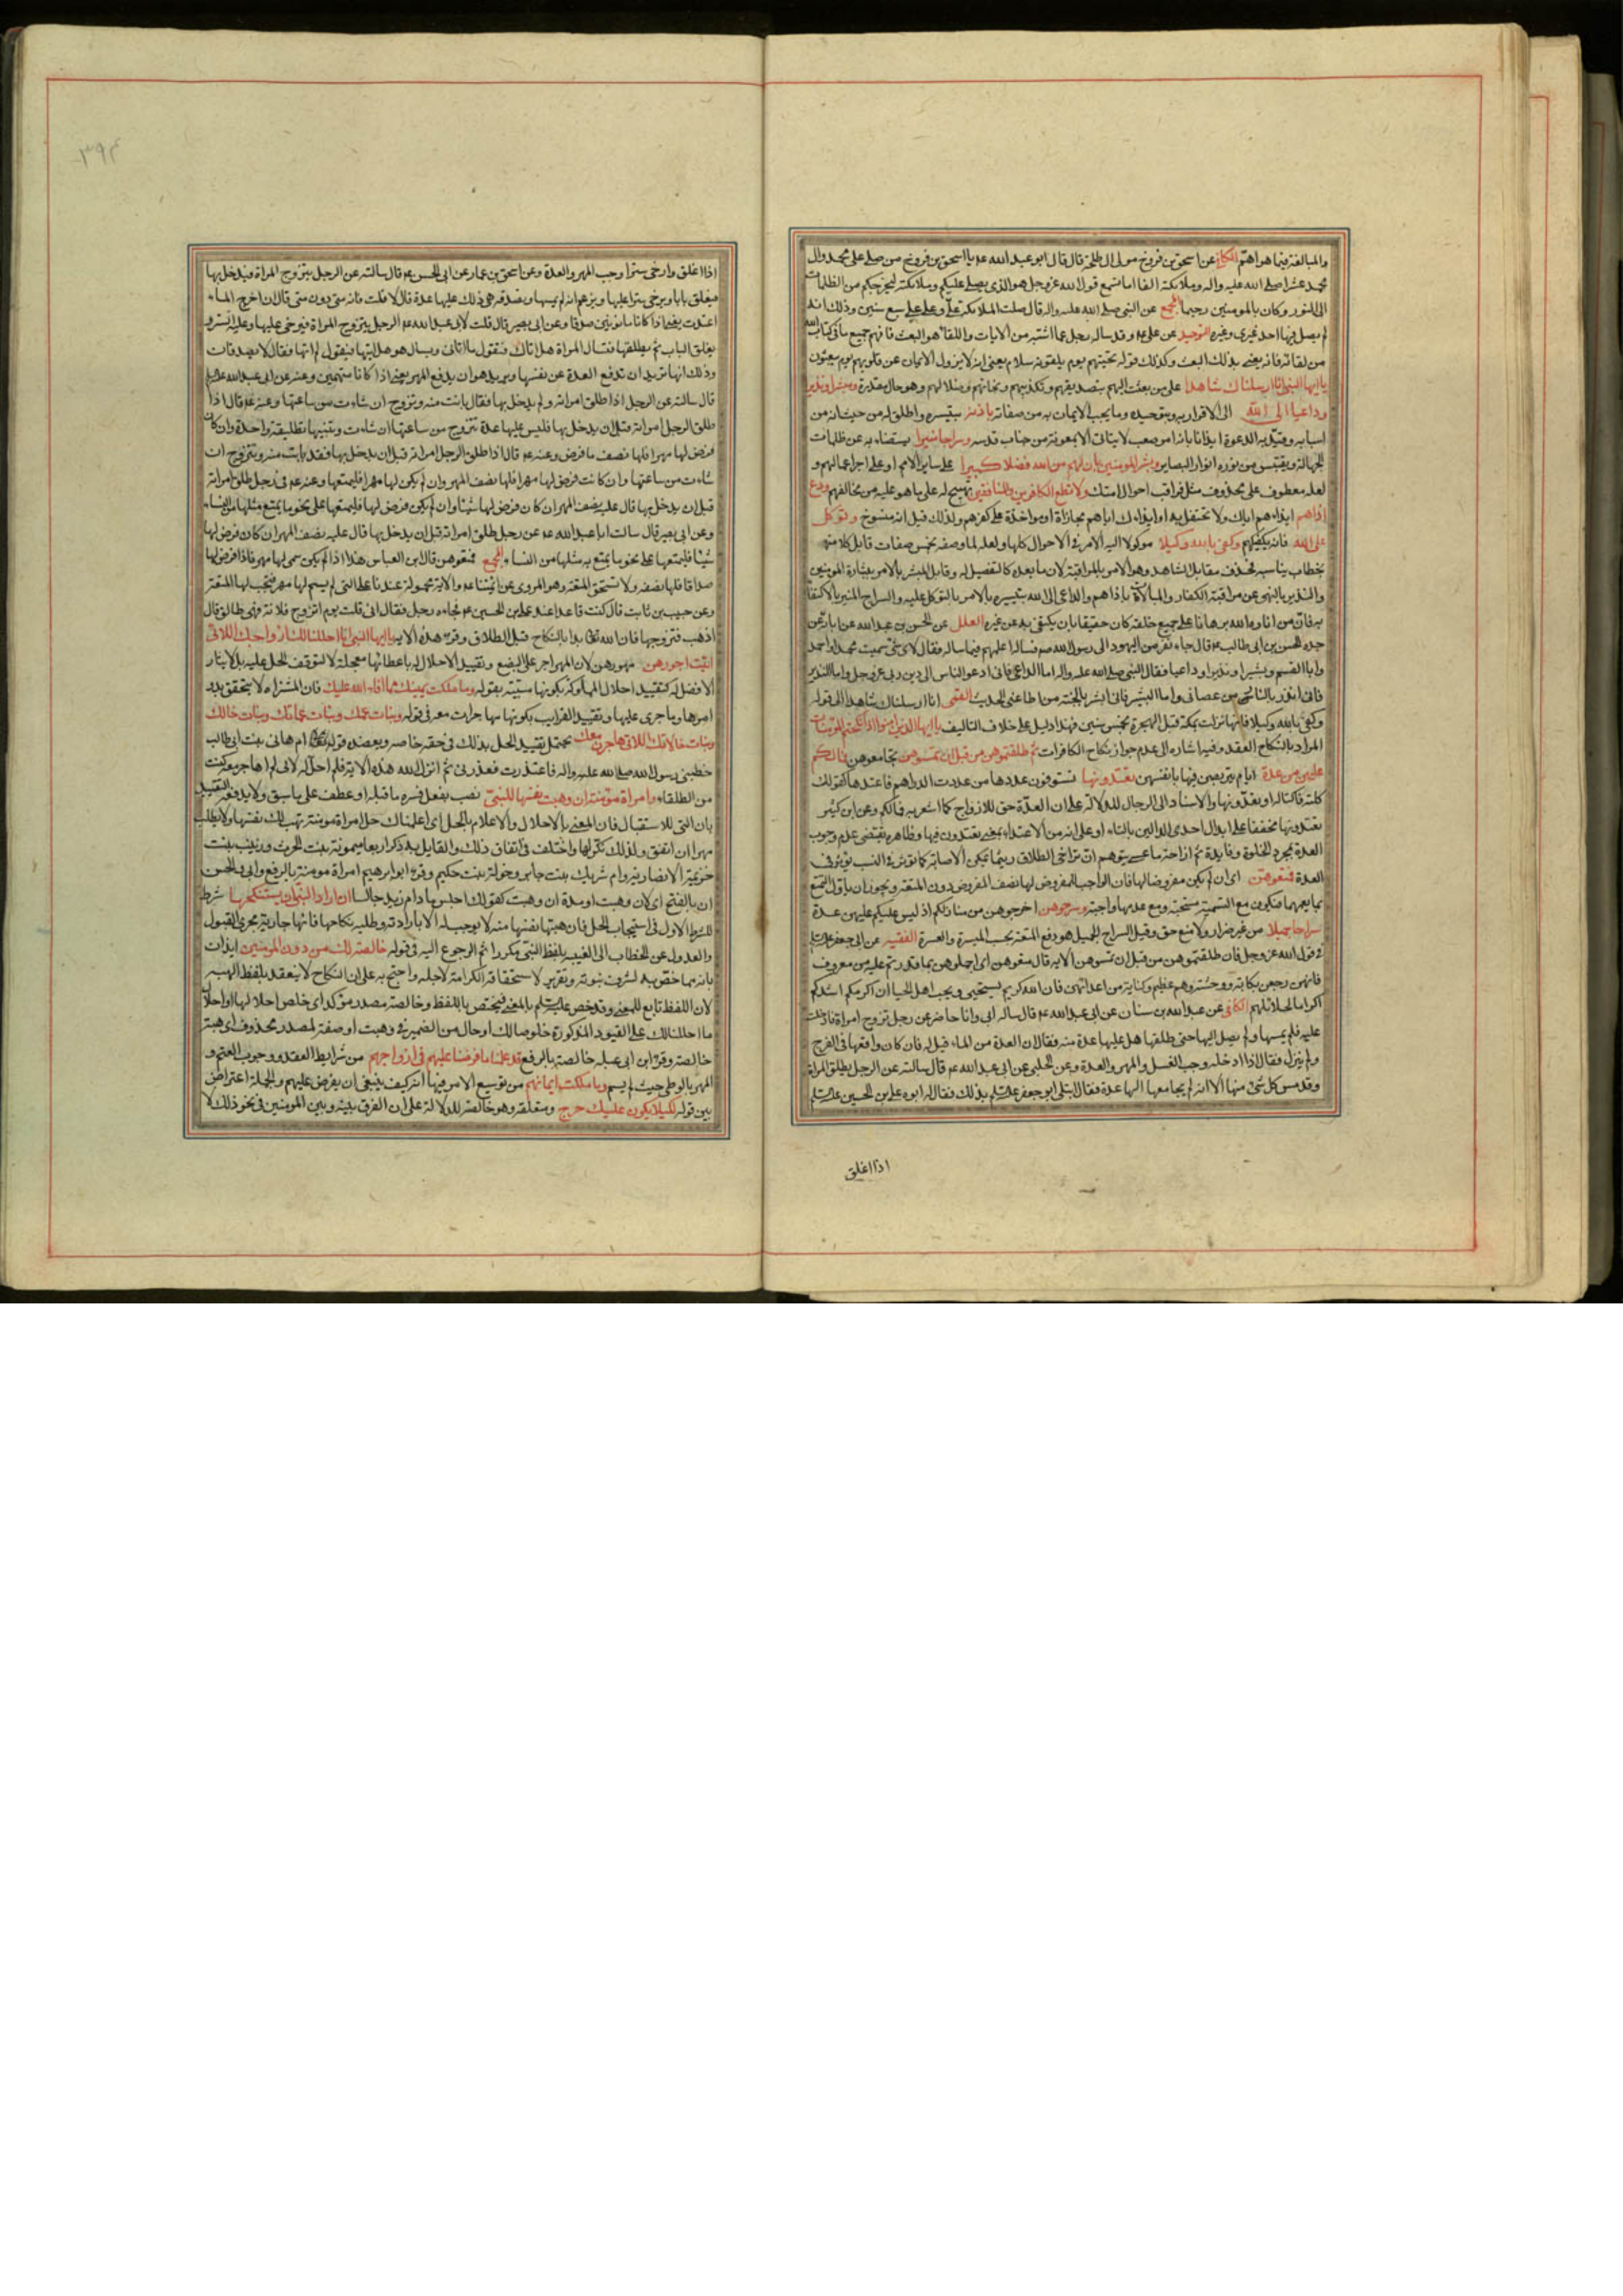 والمبالغة فيما هو اهم الكافي عن اسحق بن فروخ مولى ال طلحة قال قال ابو عبد الله عم يا اسحق بن فروخ من صلى على محمد وال
محمد عشرا صلى الله عليه والہ وملائكته الفا اما تسمع قول الله عز وجل هو الذي يصلي عليكم وملائكته ليخرجكم من الظلمات
الى النور وكان بالمومنين رحيما المجمع عن النبي صلى الله عليه واله قال صلت الملائكة علي وعلى علي سبع سنين وذلك انه
لم يصل فيها احد غيري وغيره التوحيد عن علي عم وقد ساله رجل عما اشتبه من الايات واللقا هو البعث فافهم جميع ما في كتاب الله
من لقائه فانه يعني بذلك البعث وكذلك قوله تحيتهم يوم يلقونه سلام يعني انه لا يزول الايمان عن قلوبهم يوم يبعثون
يا ايها النبي انا ارسلناك شاهدا على من بعثت اليهم بتصديقهم وتكذيبهم ونجاتهم وضلالهم وهو حال مقدرة ومبشرا ونذيرا
وداعيا الى الله الى الاقرار به وبتوحيده وما يجب الايمان به من صفاته باذنه بتيسيره واطلق له من حيث انه من
اسبابه وقيد به الدعوة ايذانا بانه امر صعب لا يتاتى الا بمعونة من جناب قدسه وسراجا منيرا يستضاء به عن ظلمات
الجهالة ويقتبس من نوره انوار البصاير وبشر المومنين بان لهم من الله فضلا كبيرا على ساير الامم او على اجر اعمالهم و
لعله معطوف على محذوف مثل فراقب احوال امتك ولا تطع الكافرين والمنافقين تهييج له على ما هو عليه من مخالفتهم ودع
اذاهم ايذاءهم اياك ولا تحتفل به او ايذاءك اياهم مجازاة او مواخذة على كفرهم ولذلك قيل انه منسوخ وتوكل
على الله فانه يكفيكهم وكفى بالله وكيلا موكولا اليه الامر في الاحوال كلها ولعله لما وصفه بخمس صفات قابل كلا منها
بخطاب يناسبه فحذف مقابل الشاهد وهو الامر بالمراقبة لان ما بعده كالتفصيل له وقابل المبشر بالامر ببشارة المومنين
والنذير بالنهي عن مراقبة الكفار والمبالاة باذاهم والداعي الى الله بتيسيره بالامر بالتوكل عليه والسراج المنير بالاكتفاء
به فان من اناره الله برهانا على جميع خلقه كان حقيقا بان يكتفى به عن غيره العلل عن الحسن بن عبد الله عن ابائه عن
جده الحسن بن ابي طالب عم قال جاء نفر من اليهود الى رسول الله صم فساله اعلمهم فيما ساله فقال لاي شي سميت محمدا واحمد
وابا القسم وبشيرا ونذيرا وداعيا فقال النبي صلى الله عليه واله اما الداعي فاني ادعو الناس الى دين ربي عز وجل واما النذير
فاني انذر بالنار من عصاني واما البشير فاني ابشر بالجنة من اطاعني الحديث القمي انا ارسلناك شاهدا الى قوله
وكفى بالله وكيلا فانها نزلت بمكة قبل الهجرة بخمس سنين فهذا دليل على خلاف التاليف يا ايها الذين امنوا اذا نكحتم المومنات
المراد بالنكاح العقد وفيه اشارة الى عدم جواز نكاح الكافرات ثم طلقتموهن من قبل ان تمسوهن تجامعوهن فما لكم
عليهن من عدة ايام يتربصن فيها بانفسهن تعتدونها تستوفون عددها من عددت الدراهم فاعتدها كقولك
كلته فاكتاله او تعدونها والاسناد الى الرجال للدلالة على ان العدة حق للازواج كما اشعر به فما لكم وعن ابن كثير
تعتدونها مخففا على ابدال احدى الدالين بالتاء او على انه من الاعتداء بمعنى تعتدون فيها وظاهره يقتضي عدم وجوب
العدة بمجرد الخلوة وفايدة ثم ازاحة ما عسى يتوهم ان تراخي الطلاق ريثما تمكن الاصابة كما توثر في النسب يوثر في
العدة فمتعوهن اي ان لم يكن مفروضا لها فان الواجب للمفروض لها نصف المفروض دون المتعة ويجوز ان ياول التمتع
بما يعمهما فتكون مع التسمية مستحبة ومع عدمها واجبة وسرحوهن اخرجوهن من منازلكم اذ ليس عليكم عليهن عدة
سراحا جميلا من غير ضرار ولا منع حق وقيل السراح الجميل هو دفع المتعة بحسب الميسرة والعسرة الفقيه عن ابي جعفر عليه السلم
في قول الله عز وجل فان طلقتموهن من قبل ان تمسوهن الاية قال متعوهن اي احملوهن بما قدرتم عليه من معروف
فانهن رجعن بكابة ووحشة وهم عظيم وشماتة من اعدائهن فان الله كريم يستحيي ويحب اهل الحيا ان اكرمكم اشدكم
اكراما لحلائلهم الكافي عن عبد الله بن سنان عن ابي عبد الله عم قال ساله ابي وانا حاضر عن رجل تزوج امراة فادخلت
عليه فلم يمسها ولم يصل اليها حتى طلقها هل عليها عدة منه فقال ان العدة من الماء قيل له فان كان واقعها في الفرج
ولم ينزل فقال اذا ادخله وجب الغسل والمهر والعدة وعن الحلبي عن ابي عبد الله عم قال سالته عن الرجل يطلق المراة
وقد مس كل شي منها الا انه لم يجامعها الها عدة فقال ابتلي ابو جعفر عليه السلم بذلك فقال له ابوه علي بن الحسين عليه السلم
اذا اغلق
٣٩٤
اذا اغلق وارخى سترا وجب المهر والعدة وعن اسحق بن عمار عن ابي الحسن عم قال سالته عن الرجل يتزوج المراة فيدخل بها
فيغلق بابا ويرخي سترا عليها ويزعم انه لم يمسها وتصدقه هي بذلك عليها عدة قال لا قلت فانه شي دون شي قال ان اخرج الماء
اعتدت يعني اذا كانا مامونين صدقا وعن ابي بصير قال قلت لابي عبد الله عم الرجل يتزوج المراة فيرخي عليها وعليه الستر و
يغلق الباب ثم يطلقها فتسال المراة هل اتاك فتقول ما اتاني ويسال هو هل اتيتها فيقول لم اتها فقال لا يصدقان
وذلك انها تريد ان تدفع العدة عن نفسها ويريد هو ان يدفع المهر يعني اذا كانا متهمين وعنه عن ابي عبد الله
قال سالته عن الرجل اذا طلق امراته ولم يدخل بها فقال بانت منه وتزوج ان شاءت من ساعتها وعنه عم قال اذا
طلق الرجل امراته قبل ان يدخل بها فليس عليها عدة تتزوج من ساعتها ان شاءت وتبينها تطليقة واحدة وان كان
فرض لها مهرا فلها نصف ما فرض وعنه عم قال اذا طلق الرجل امراته قبل ان يدخل بها فقد بانت منه وتتزوج ان
شاءت من ساعتها وان كانت فرض لها مهرا فلها نصف المهر وان لم يكن لها مهر فليمتعها وعنه عم في رجل طلق امراته
قبل ان يدخل بها قال عليه نصف المهر ان كان فرض لها شيئا وان لم يكن فرض لها فليمتعها على نحو ما يمتع مثلها من النساء
وعن ابي بصير قال سالت ابا عبد الله عم عن رجل طلق امراته قبل ان يدخل بها قال عليه نصف المهر ان كان فرض لها
شيئا فليمتعها على نحو ما يمتع به مثلها من النساء والمجمع فمتعوهن قال ابن العباس هذا اذا لم يكن سمى لها مهر فاذا فرض لها
صداقا فلها نصفه ولا تستحق المتعة وهو المروي عن ائمتنا عم والاية محمولة عندنا على التي لم يسم لها مهر فيجب لها المتعة
وعن حبيب بن ثابت قال كنت قاعدا عند علي بن الحسين عم فجاءه رجل فقال اني قلت يوم اتزوج فلانة فهي طالق قال
اذهب فتزوجها فان الله تعا بدا بالنكاح قبل الطلاق وقرء هذه الاية يا ايها النبي انا احللنا لك ازواجك اللاتي
اتيت اجورهن مهورهن لان المهر اجر على البضع وتقييد الاحلال له باعطائها معجلة لا لتوقف الحل عليه بل لايثار
الافضل له كتقييد احلال المملوكة بكونها مسبية بقوله وما ملكت يمينك مما افاء الله عليك فان المشتراة لا يتحقق بدء
امرها وما جرى عليها وتقييد القرايب بكونها مهاجرات معه في قوله وبنات عمك وبنات عماتك وبنات خالك
وبنات خالاتك اللاتي هاجرن معك يحتمل تقييد الحل بذلك في حقه خاصة ويعضده قول ام هاني بنت ابي طالب
خطبني رسول الله صلى الله عليه واله فاعتذرت فعذرني ثم انزل الله هذه الاية فلم احل له لاني لم اهاجر معه كنت
من الطلقاء وامراة مومنة ان وهبت نفسها للنبي نصب بفعل فسره ما قبله او عطف على ما سبق ولا يدفعه التقييد
بان التي للاستقبال فان المعنى بالاحلال والاعلام بالحل اي اعلمناك حل امراة مومنة تهب لك نفسها ولا تطلب
مهرا ان اتفق ولذلك نكرها واختلف في اتفاق ذلك والقايل به ذكر اربعا ميمونة بنت الحرث وزينب بنت
خزيمة الانصارية وام شريك بنت جابر وخولة بنت حكيم وقرء ابو ابرهيم امراة مومنة بالرفع وابي والحسن
ان بالفتح اي لان وهبت او مدة ان وهبت كقولك اجلس ما دام زيد جالسا ان اراد النبي ان يستنكحها شرط
للشرط الاول في استيجاب الحل فان هبتها نفسها منه لا يوجب له الا بارادته وطلبه نكاحها فانها جارية مجرى القبول
والعدول عن الخطاب الى الغيبة بلفظ النبي مكررا ثم الرجوع اليه في قوله خالصة لك من دون المومنين ايذان
بانه مما خص به لشرف نبوته وتقرير لاستحقاقه الكرامة لاجله واحتج به على ان النكاح لا ينعقد بلفظ الهبة
لان اللفظ تابع للمعنى وقد خص عليه السلم بالمعنى فيختص باللفظ وخالصة مصدر موكد اي خلص احلالها او احلال
ما احللنا لك على القيود المذكورة خلوصا لك او حال من الضمير في وهبت او صفة لمصدر محذوف اي هبة
خالصة وقرء ابن ابي عبلة خالصة بالرفع قد علمنا ما فرضنا عليهم في ازواجهم من شرايط العقد ووجوب القسم و
المهر بالوطي حيث لم يسم وما ملكت ايمانهم من توسيع الامر فيها انه كيف ينبغي ان يفرض عليهم والجملة اعتراض
بين قوله لكيلا يكون عليك حرج ومتعلقه وهو خالصة للدلالة على ان الفرق بينه وبين المومنين في نحو ذلك لا